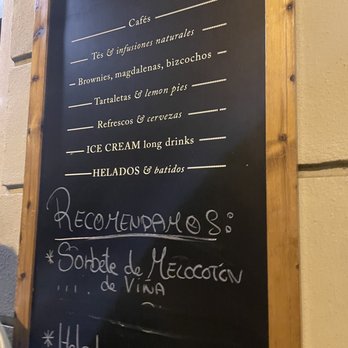 Cafés
Tés & infusiones naturales
Brownies, magdalenas, bizcochos
Tartaletas & lemon pies
Refrescos & cervezas
ICE CREAM long drinks
HELADOS & batidos
RECOMENDAMOS:
* Sorbete de MELOCOTON
.... de VIÑA
*